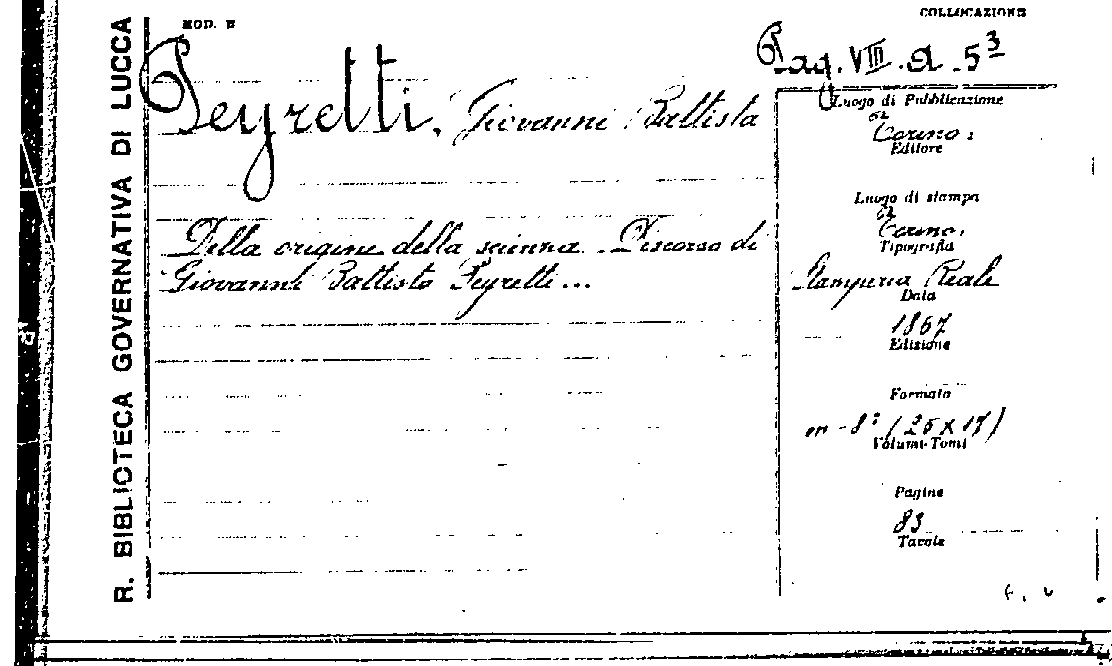 R. BIBLIOTECA GOVERNATIVA DI LUCCA
MOD. B
COLLOCAZIONE
Pag. VIII. A. 5³
Peyretti, Giovanni Battista
Della origine della scienza. Discorso di
Giovanni Battista Peyretti...
Luogo di Pubblicazione
Torino:
Editore
Luogo di stampa
Torino,
Tipografia
Stamperia Reale
Data
1867
Edizione
Formato
in-8° (25 x 17)
Volumi-Tomi
Pagine
83
Tavole